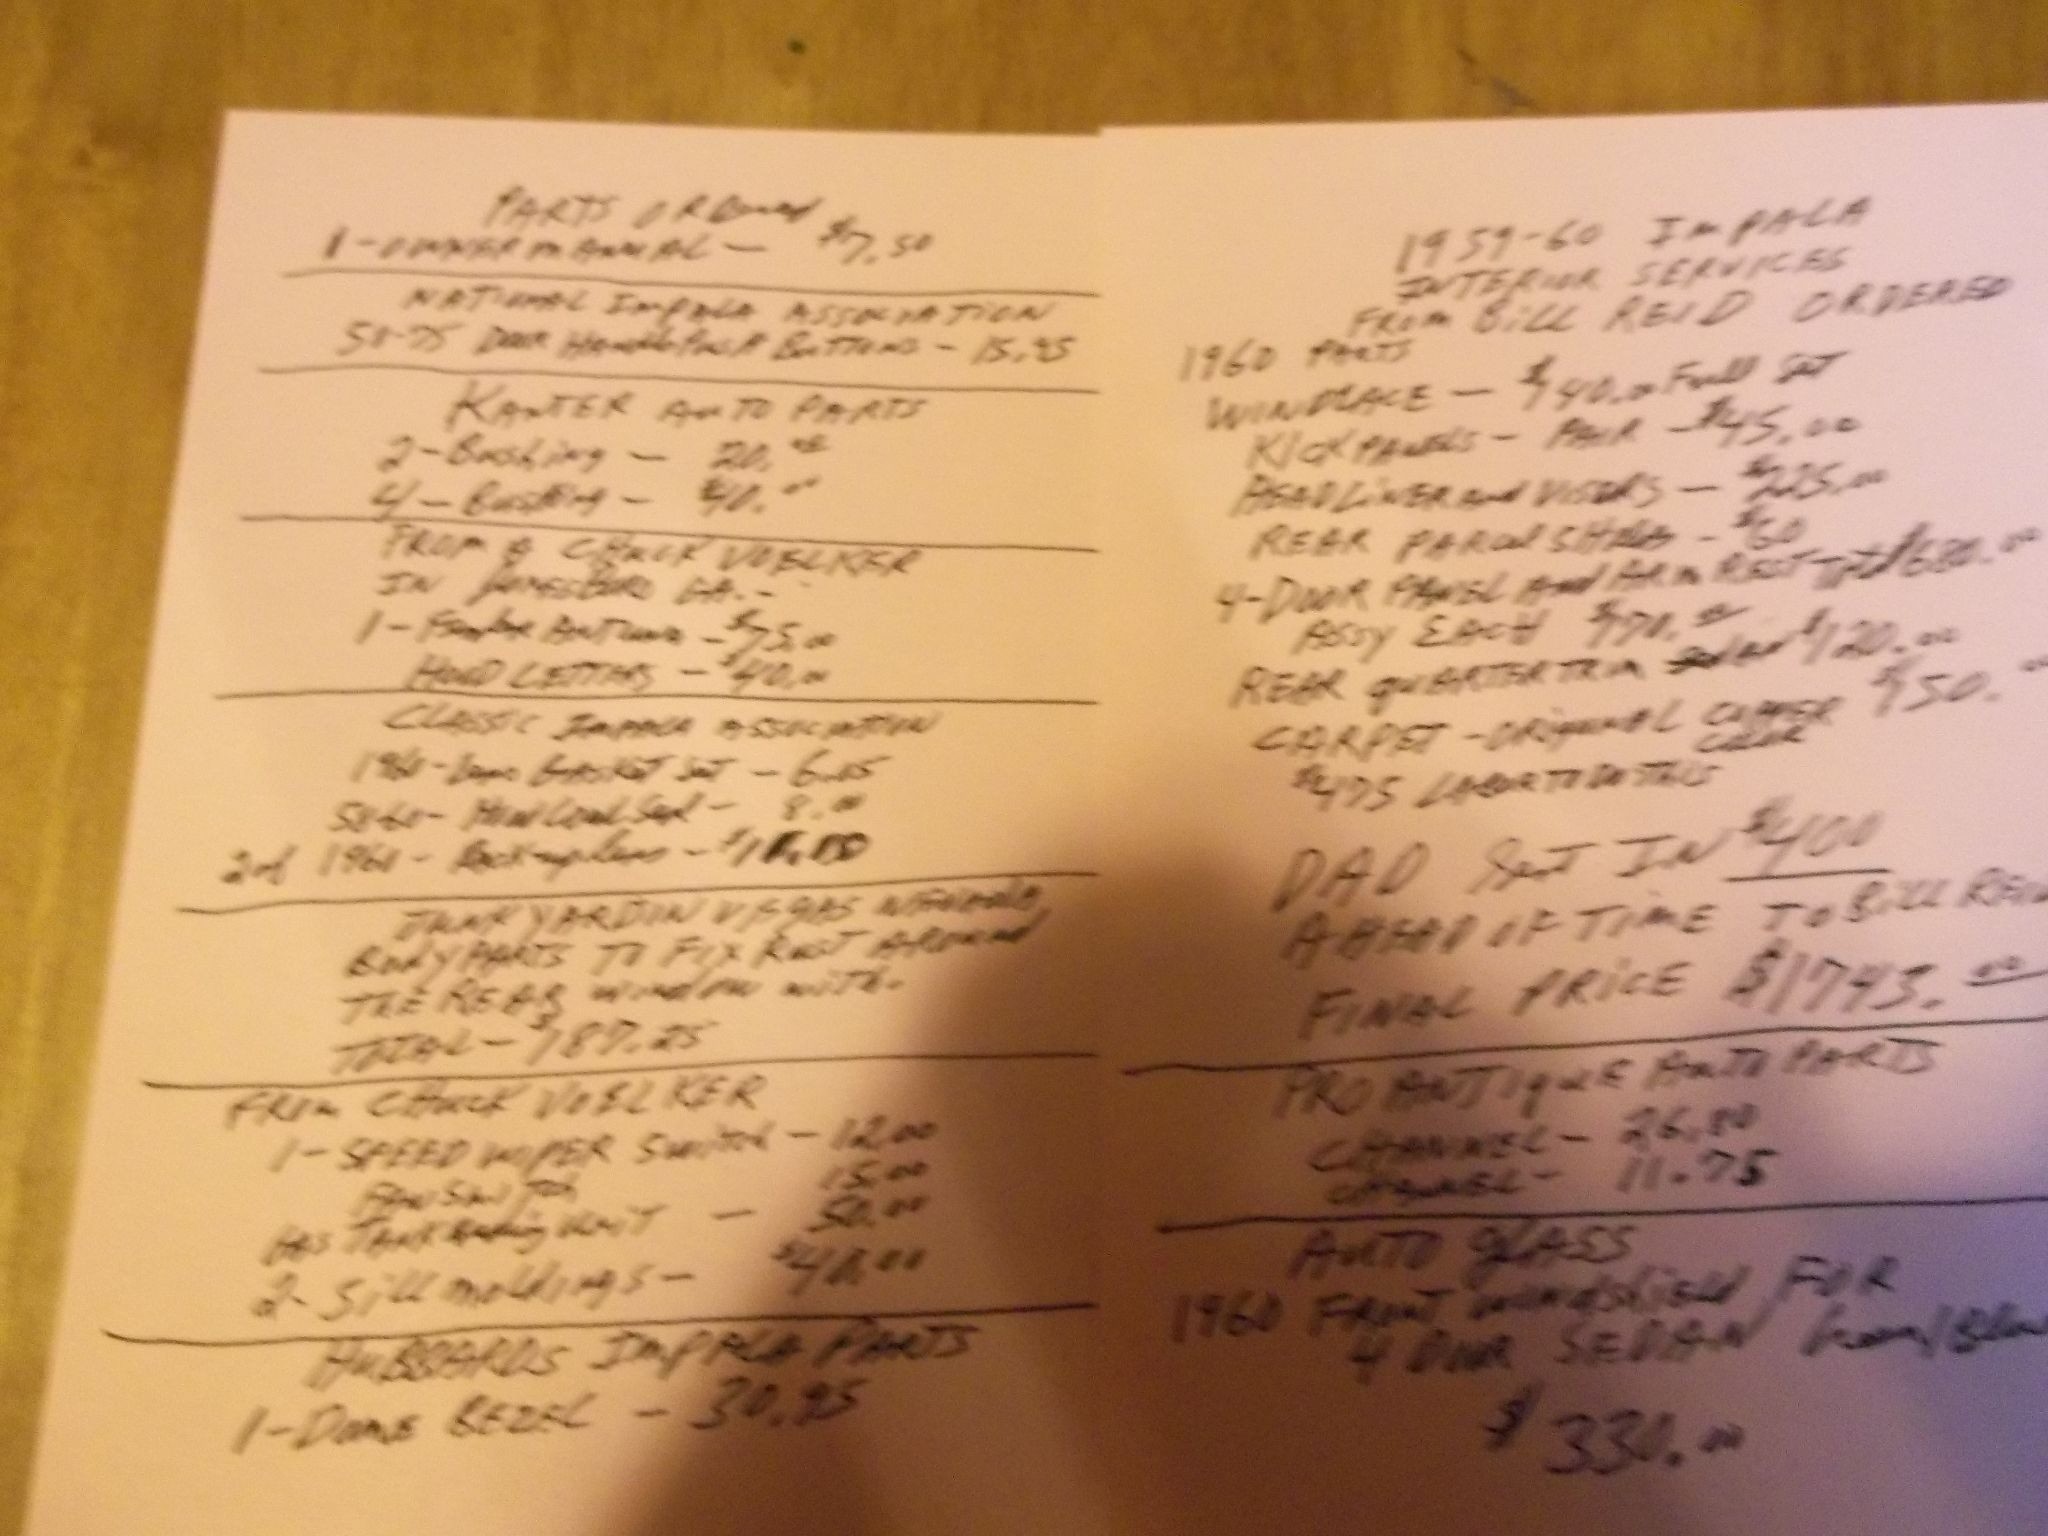 PARTS ORDERED
1-OWNER MANUAL - $7.50
NATIONAL IMPALA ASSOCIATION
58-75 DOOR HANDLE BUTTONS - 15.95
KANTER AUTO PARTS
2-Bushing - 20.00
4-Bushing - $40.00
FROM A CHUCK VOELKER
IN JONESBORO GA.-
1-Fender Antenna - $75.00
HOOD LETTERS - $40.00
CLASSIC IMPALA ASSOCIATION
1960-Dome GASKET Set -
Hood Cowl Seal - 8.00
2 of 1960 - Back-up lens -
JUNK YARD IN
BODY PARTS TO FIX RUST AROUND
THE REAR WINDOW WITH.
TOTAL - $187.25
FROM CHUCK VOELKER
1-SPEED WIPER SWITCH - 12.00
FAN SWITCH 15.00
GAS TANK sending UNIT - 50.00
2-Sill moldings - $40.00
HUBBARDS IMPALA PARTS
1-DOME BEZEL - 30.95
1959-60 IMPALA
INTERIOR SERVICES
FROM BILL REID ORDERED
1960 PARTS
WINDLACE - Full Set
KICK PANELS - PAIR - $45.00
HEADLINER and VISORS - $225.00
REAR - $60
4-DOOR PANEL And ARM REST $680.00
ASSY EACH $170.00
REAR QUARTER TRIM $120.00
CARPET-ORIGINAL COPPER $150.00
COLOR
$475 LABOR TO DO THIS
DAD Sent IN $400
AHEAD OF TIME TO BILL REID
FINAL PRICE $1743.00
PRO ANTIQUE AUTO PARTS
CHANNEL - 26.80
CHANNEL - 11.75
AUTO GLASS
1960 FRONT windshield FOR
4 DOOR SEDAN
$330.00